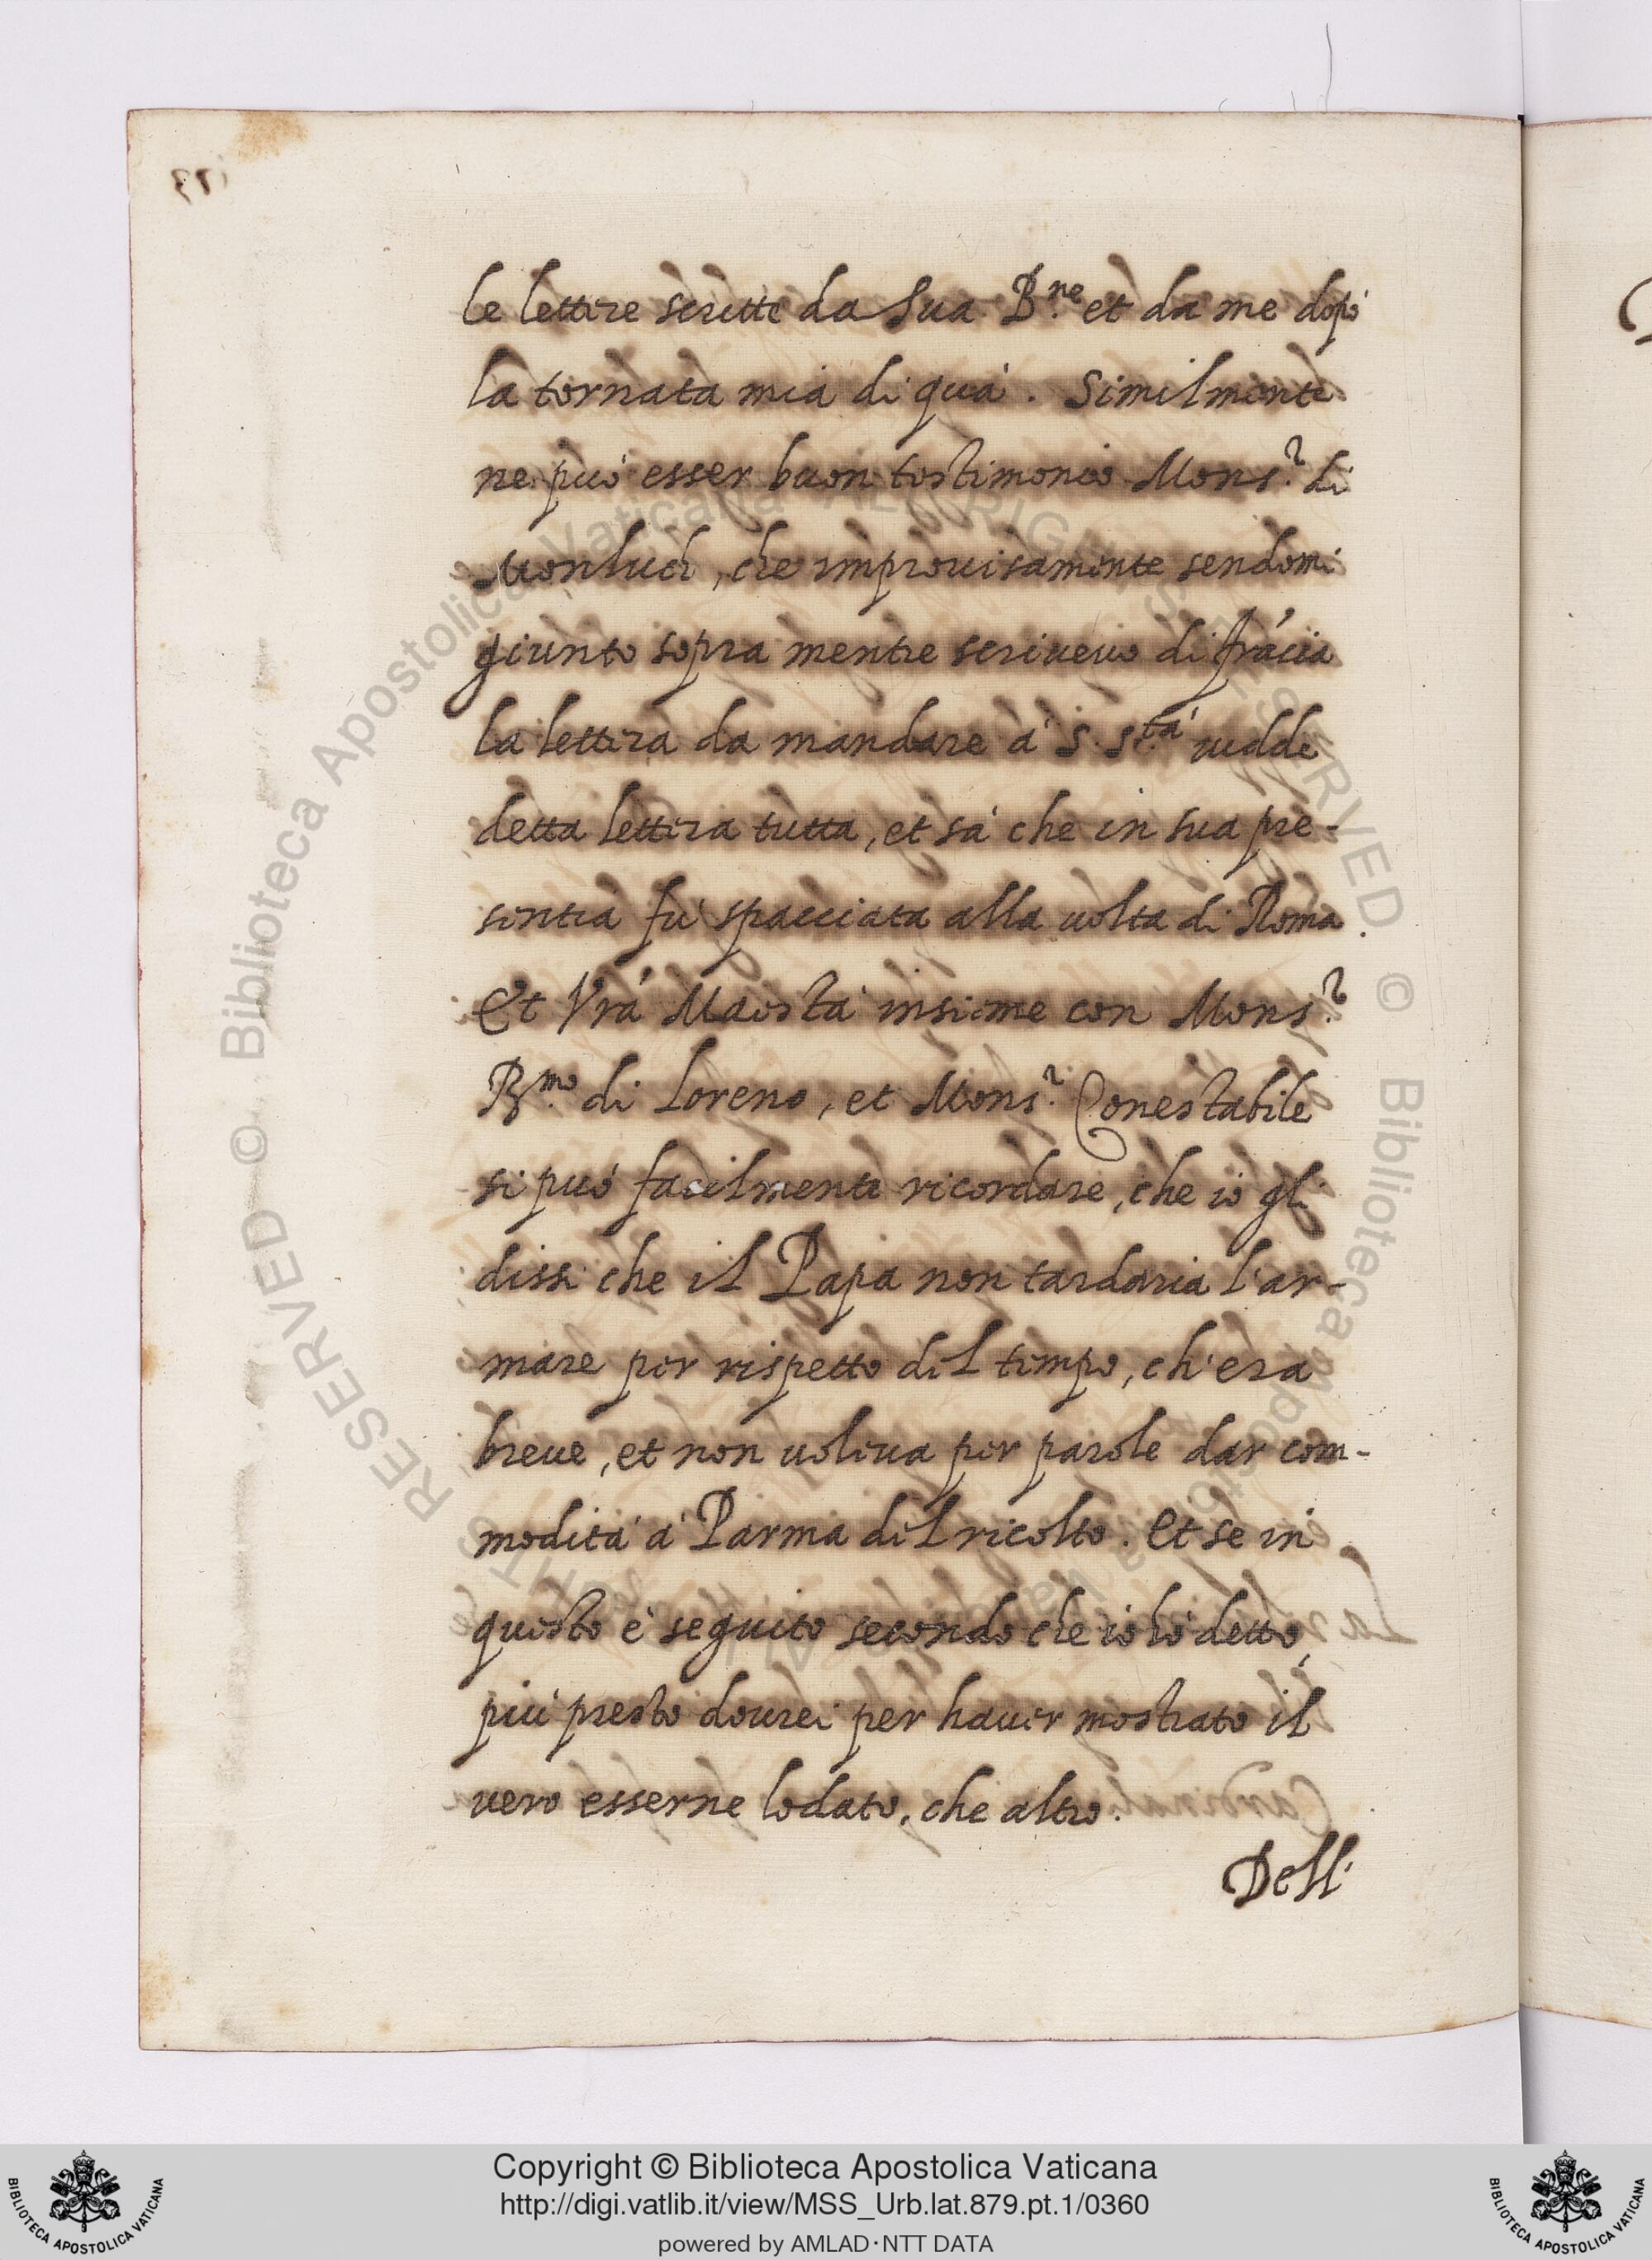 le lettere scritte da Sua B.ne et da me dopò
la tornata mia di quà. Similmente
ne può esser buon testimonio Mons.r di
Monluch, che improuisamente sendomi
giunto sopra mentre scriueuo di frácia
la lettera da mandare à S. S.tà uedde
detta lettera tutta, et sà che in sua pre-
sentia fù spacciata alla uolta di Roma.
Et Vrá Maestà insieme con Mons.r
R.mo di Loreno, et Mons.r Conestabile
si può facilmente ricordare, che iò gli
dissi che il Papa non tardaria l'ar-
mare per rispetto del tempo, ch'era
breue, et non uoleua per parole dar com-
modità à Parma del ricolto. Et se in
questo è seguito secondo che iò hò detto,
più presto dourei per hauer mostrato il
uero esserne lodato, che altro.
Dell'
Copyright © Biblioteca Apostolica Vaticana
http://digi.vatlib.it/view/MSS_Urb.lat.879.pt.1/0360
powered by AMLAD·NTT DATA
BIBLIOTECA APOSTOLICA VATICANA
BIBLIOTECA APOSTOLICA VATICANA